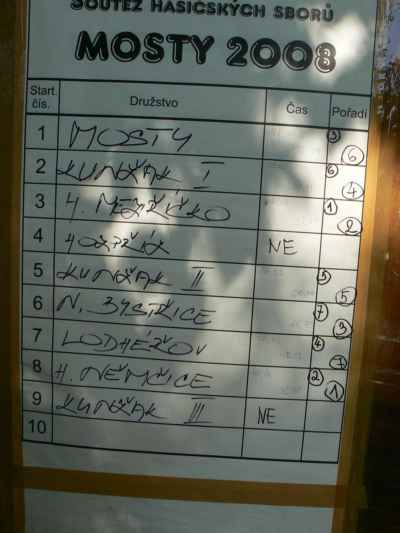 SOUTĚŽ HASIČSKÝCH SBORŮ
MOSTY 2008
Start. čís. Družstvo Čas Pořadí
1 MOSTY 3 6
2 KUNŽAK I 6 4
3 H. MEZIŘÍČKO 1 2
4 NE
5 KUNŽAK II 5 5
6 N. BYSTŘICE 7 3
7 LODHÉŘOV 4 7
8 H. NĚMČICE 2 1
9 KUNŽAK III NE
10